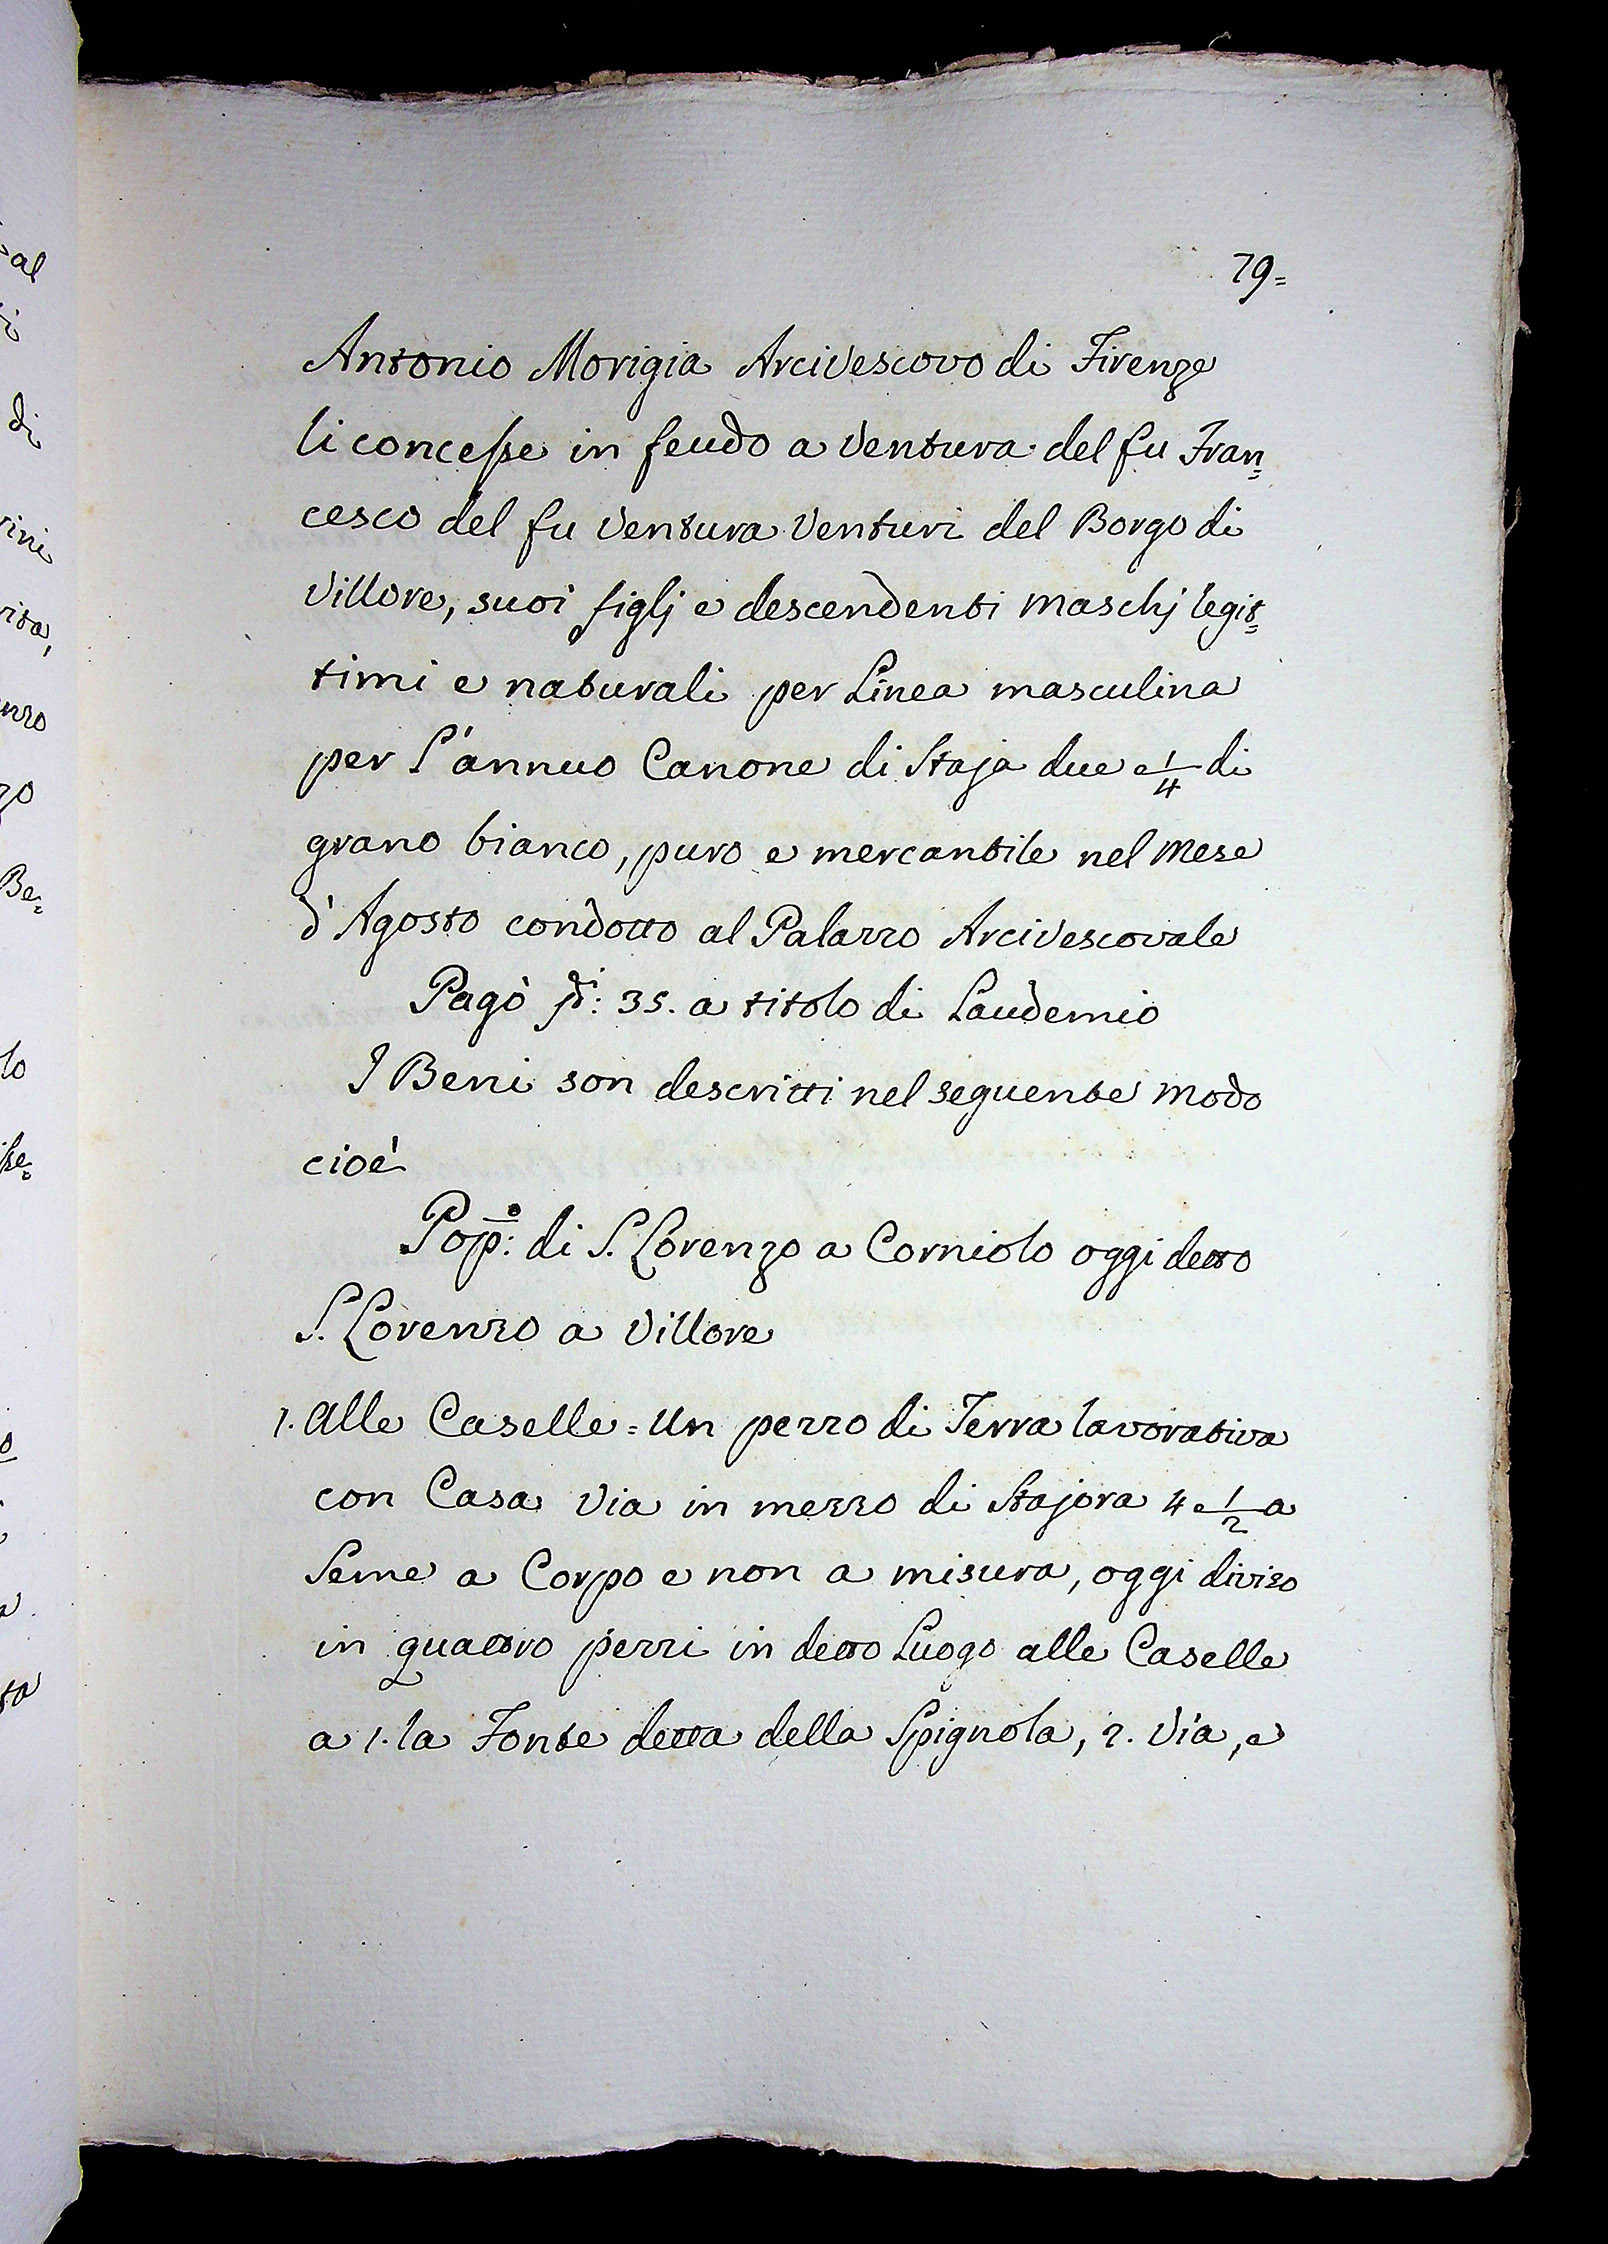 79=
Antonio Morigia Arcivescovo di Firenze
li concesse in feudo a Ventura del fu Fran=
cesco del fu Ventura Venturi del Borgo di
Villore, suoi figlj e descendenti maschj legit=
timi e naturali per Linea masculina
per l'annuo Canone di Staja due e 1/4 di
grano bianco, puro e mercantile nel Mese
d'Agosto condotto al Palazzo Arcivescovale
Pagò : 35. a titolo di Laudemio
I Beni son descritti nel seguente modo
cioè
Pop:º di S. Lorenzo a Corniolo oggi detto
S. Lorenzo a Villore
1. Alle Caselle = Un pezzo di Terra lavorativa
con Casa Via in mezzo di Stajora 4 e 1/2 a
Seme a Corpo e non a misura, oggi diviso
in quattro pezzi in detto Luogo alle Caselle
a 1. la Fonte detta della Spignola, 2. Via, e